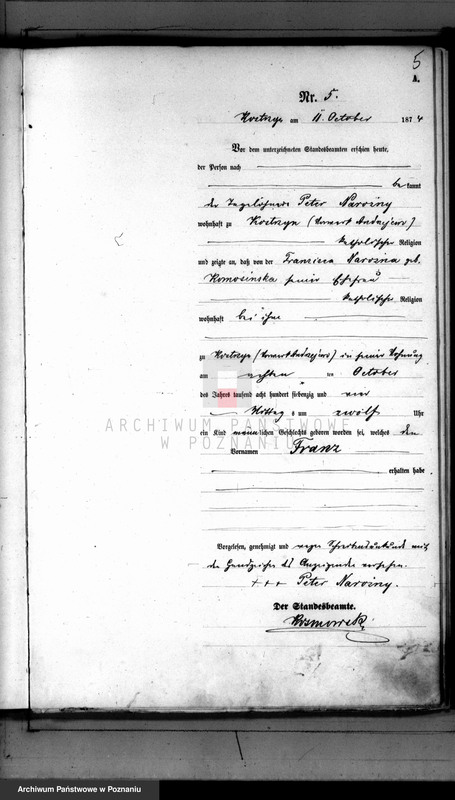 5
A.
Nr. 5.
am 11. October 1874
Vor dem unterzeichneten Standesbeamten erschien heute,
der Person nach
bekannt
der Tagelöhner Peter Narożny
wohnhaft zu
katholischer Religion
und zeigte an, daß von der Franzisca geb.
seiner Ehefrau
katholischer Religion
wohnhaft bei ihm
zu in seiner Wohnung
am achten ten October
des Jahres tausend acht hundert siebenzig und vier
Mittag s um zwölf Uhr
ein Kind männlichen Geschlechts geboren worden sei, welches den
Vornamen Franz
erhalten habe
ARCHIWUM PAŃSTWOWE
W POZNANIU
Vorgelesen, genehmigt und wegen mit
dem Handzeichen des Anzeigenden versehen.
+++ Peter Narożny.
Der Standesbeamte.
Archiwum Państwowe w Poznaniu